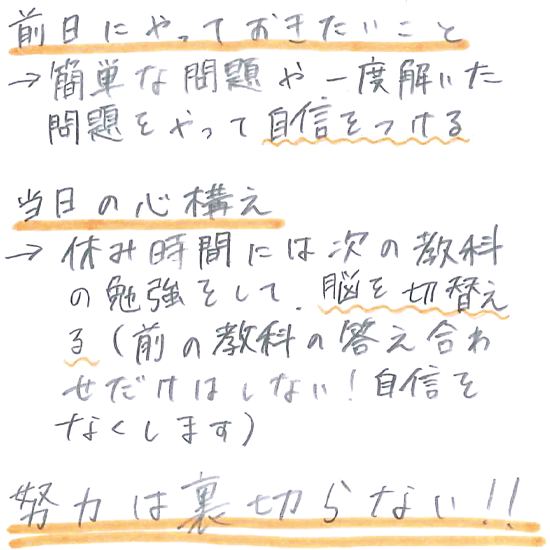 前日にやっておきたいこと
→簡単な問題や一度解いた
問題をやって自信をつける
当日の心構え
→休み時間には次の教科
の勉強をして、脳を切替え
る(前の教科の答え合わ
せだけはしない!自信を
なくします)
努力は裏切らない!!